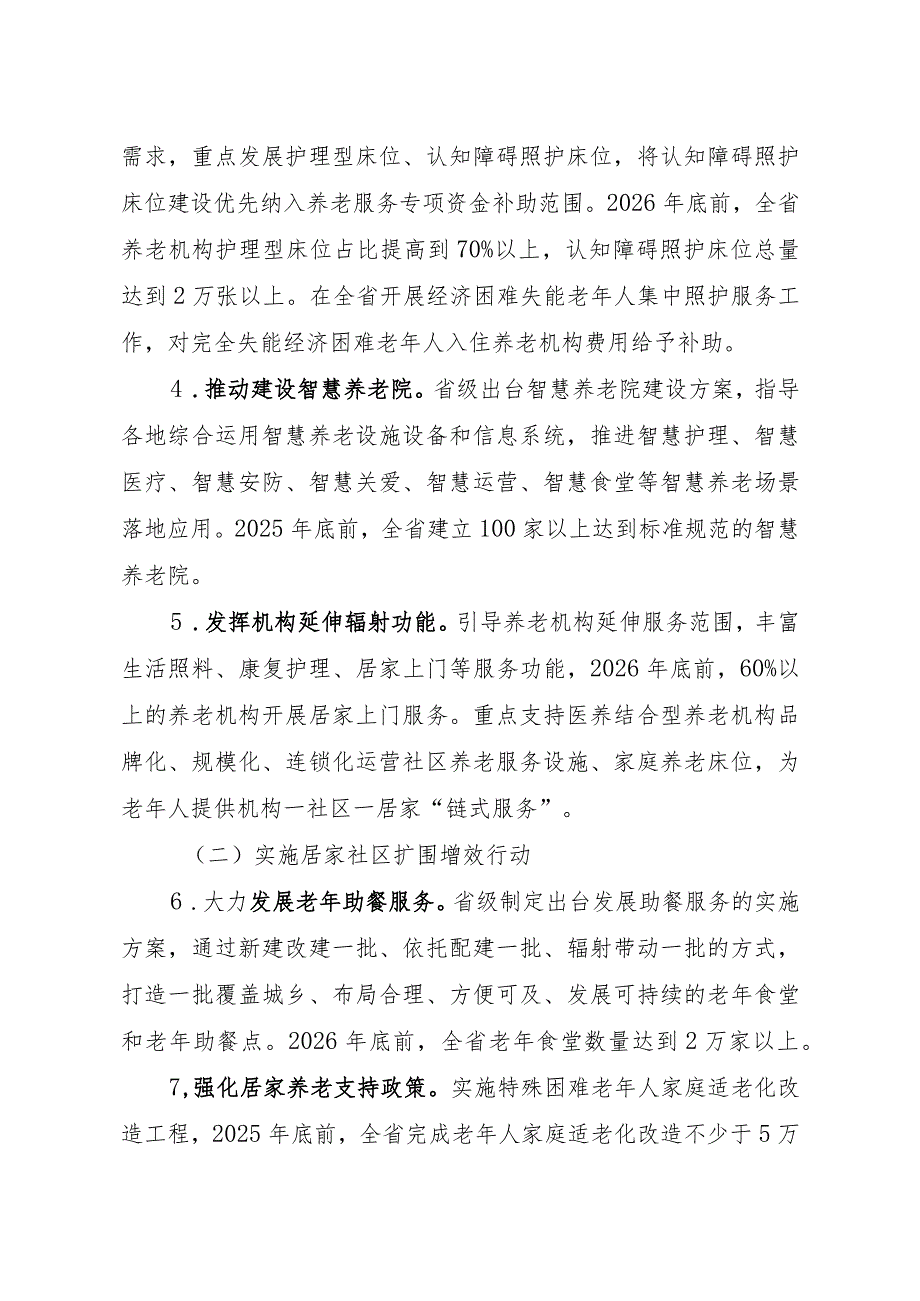 需求，重点发展护理型床位、认知障碍照护床位，将认知障碍照护
床位建设优先纳入养老服务专项资金补助范围。2026 年底前，全省
养老机构护理型床位占比提高到 70%以上，认知障碍照护床位总量
达到 2 万张以上。在全省开展经济困难失能老年人集中照护服务工
作，对完全失能经济困难老年人入住养老机构费用给予补助。
4 . 推动建设智慧养老院。省级出台智慧养老院建设方案，指导
各地综合运用智慧养老设施设备和信息系统，推进智慧护理、智慧
医疗、智慧安防、智慧关爱、智慧运营、智慧食堂等智慧养老场景
落地应用。2025 年底前，全省建立 100 家以上达到标准规范的智慧
养老院。
5 . 发挥机构延伸辐射功能。引导养老机构延伸服务范围，丰富
生活照料、康复护理、居家上门等服务功能，2026 年底前，60%以
上的养老机构开展居家上门服务。重点支持医养结合型养老机构品
牌化、规模化、连锁化运营社区养老服务设施、家庭养老床位，为
老年人提供机构一社区一居家“链式服务”。
（二）实施居家社区扩围增效行动
6 . 大力发展老年助餐服务。省级制定出台发展助餐服务的实施
方案，通过新建改建一批、依托配建一批、辐射带动一批的方式，
打造一批覆盖城乡、布局合理、方便可及、发展可持续的老年食堂
和老年助餐点。2026 年底前，全省老年食堂数量达到 2 万家以上。
7,强化居家养老支持政策。实施特殊困难老年人家庭适老化改
造工程，2025 年底前，全省完成老年人家庭适老化改造不少于 5 万